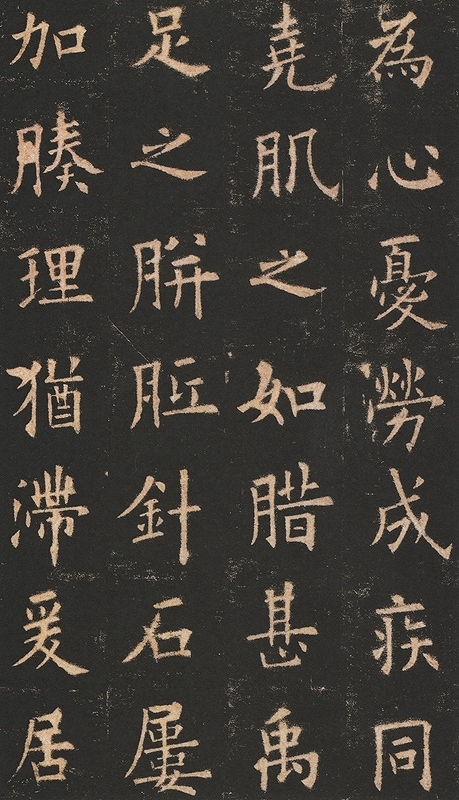 為心憂勞成疾同
堯肌之如腊甚禹
足之腁胝針石屢
加腠理猶滯爰居